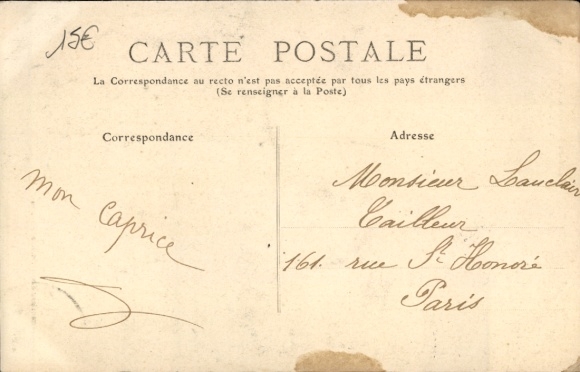 15€
CARTE POSTALE
La Correspondance au recto n'est pas acceptée par tous les pays étrangers
(Se renseigner à la Poste)
Correspondance
Adresse
mon Caprice
Monsieur Lauclair
Tailleur
161. rue St Honoré
Paris